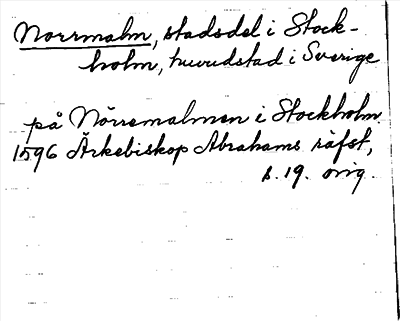 Norrmalm, stadsdel i Stock-
holm, huvudstad i Sverige
på Nörremalmen i Stockholm
1596 Ärkebiskop Abrahams räfst,
s. 19. orig.